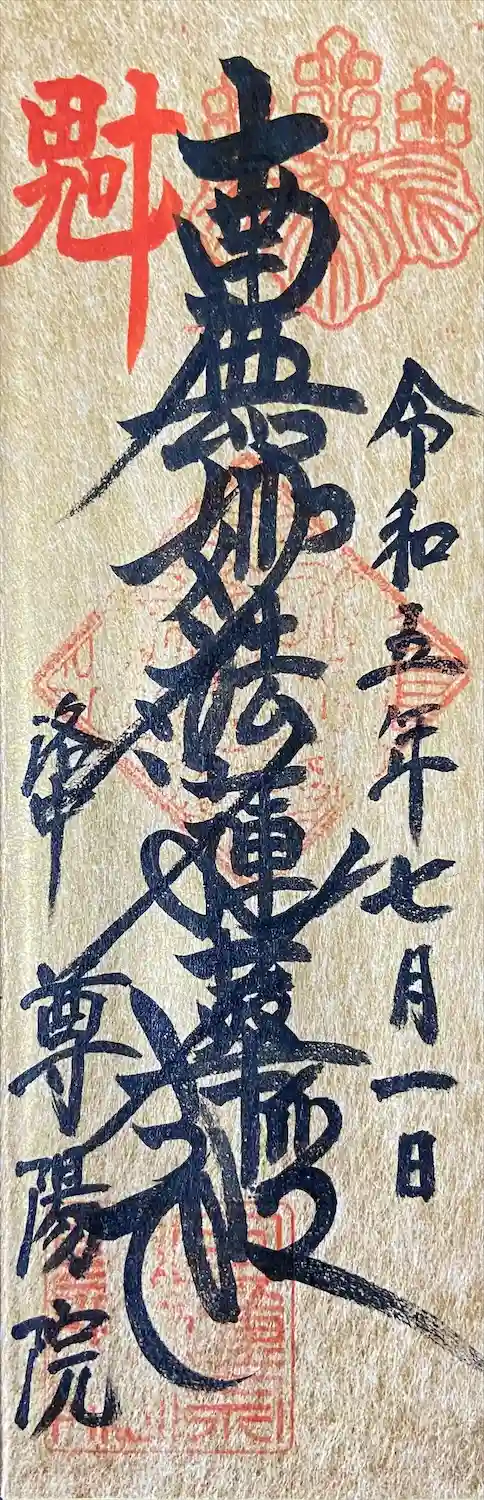 令和五年七月一日
南無妙法蓮華経
魁
洛中
尊陽院